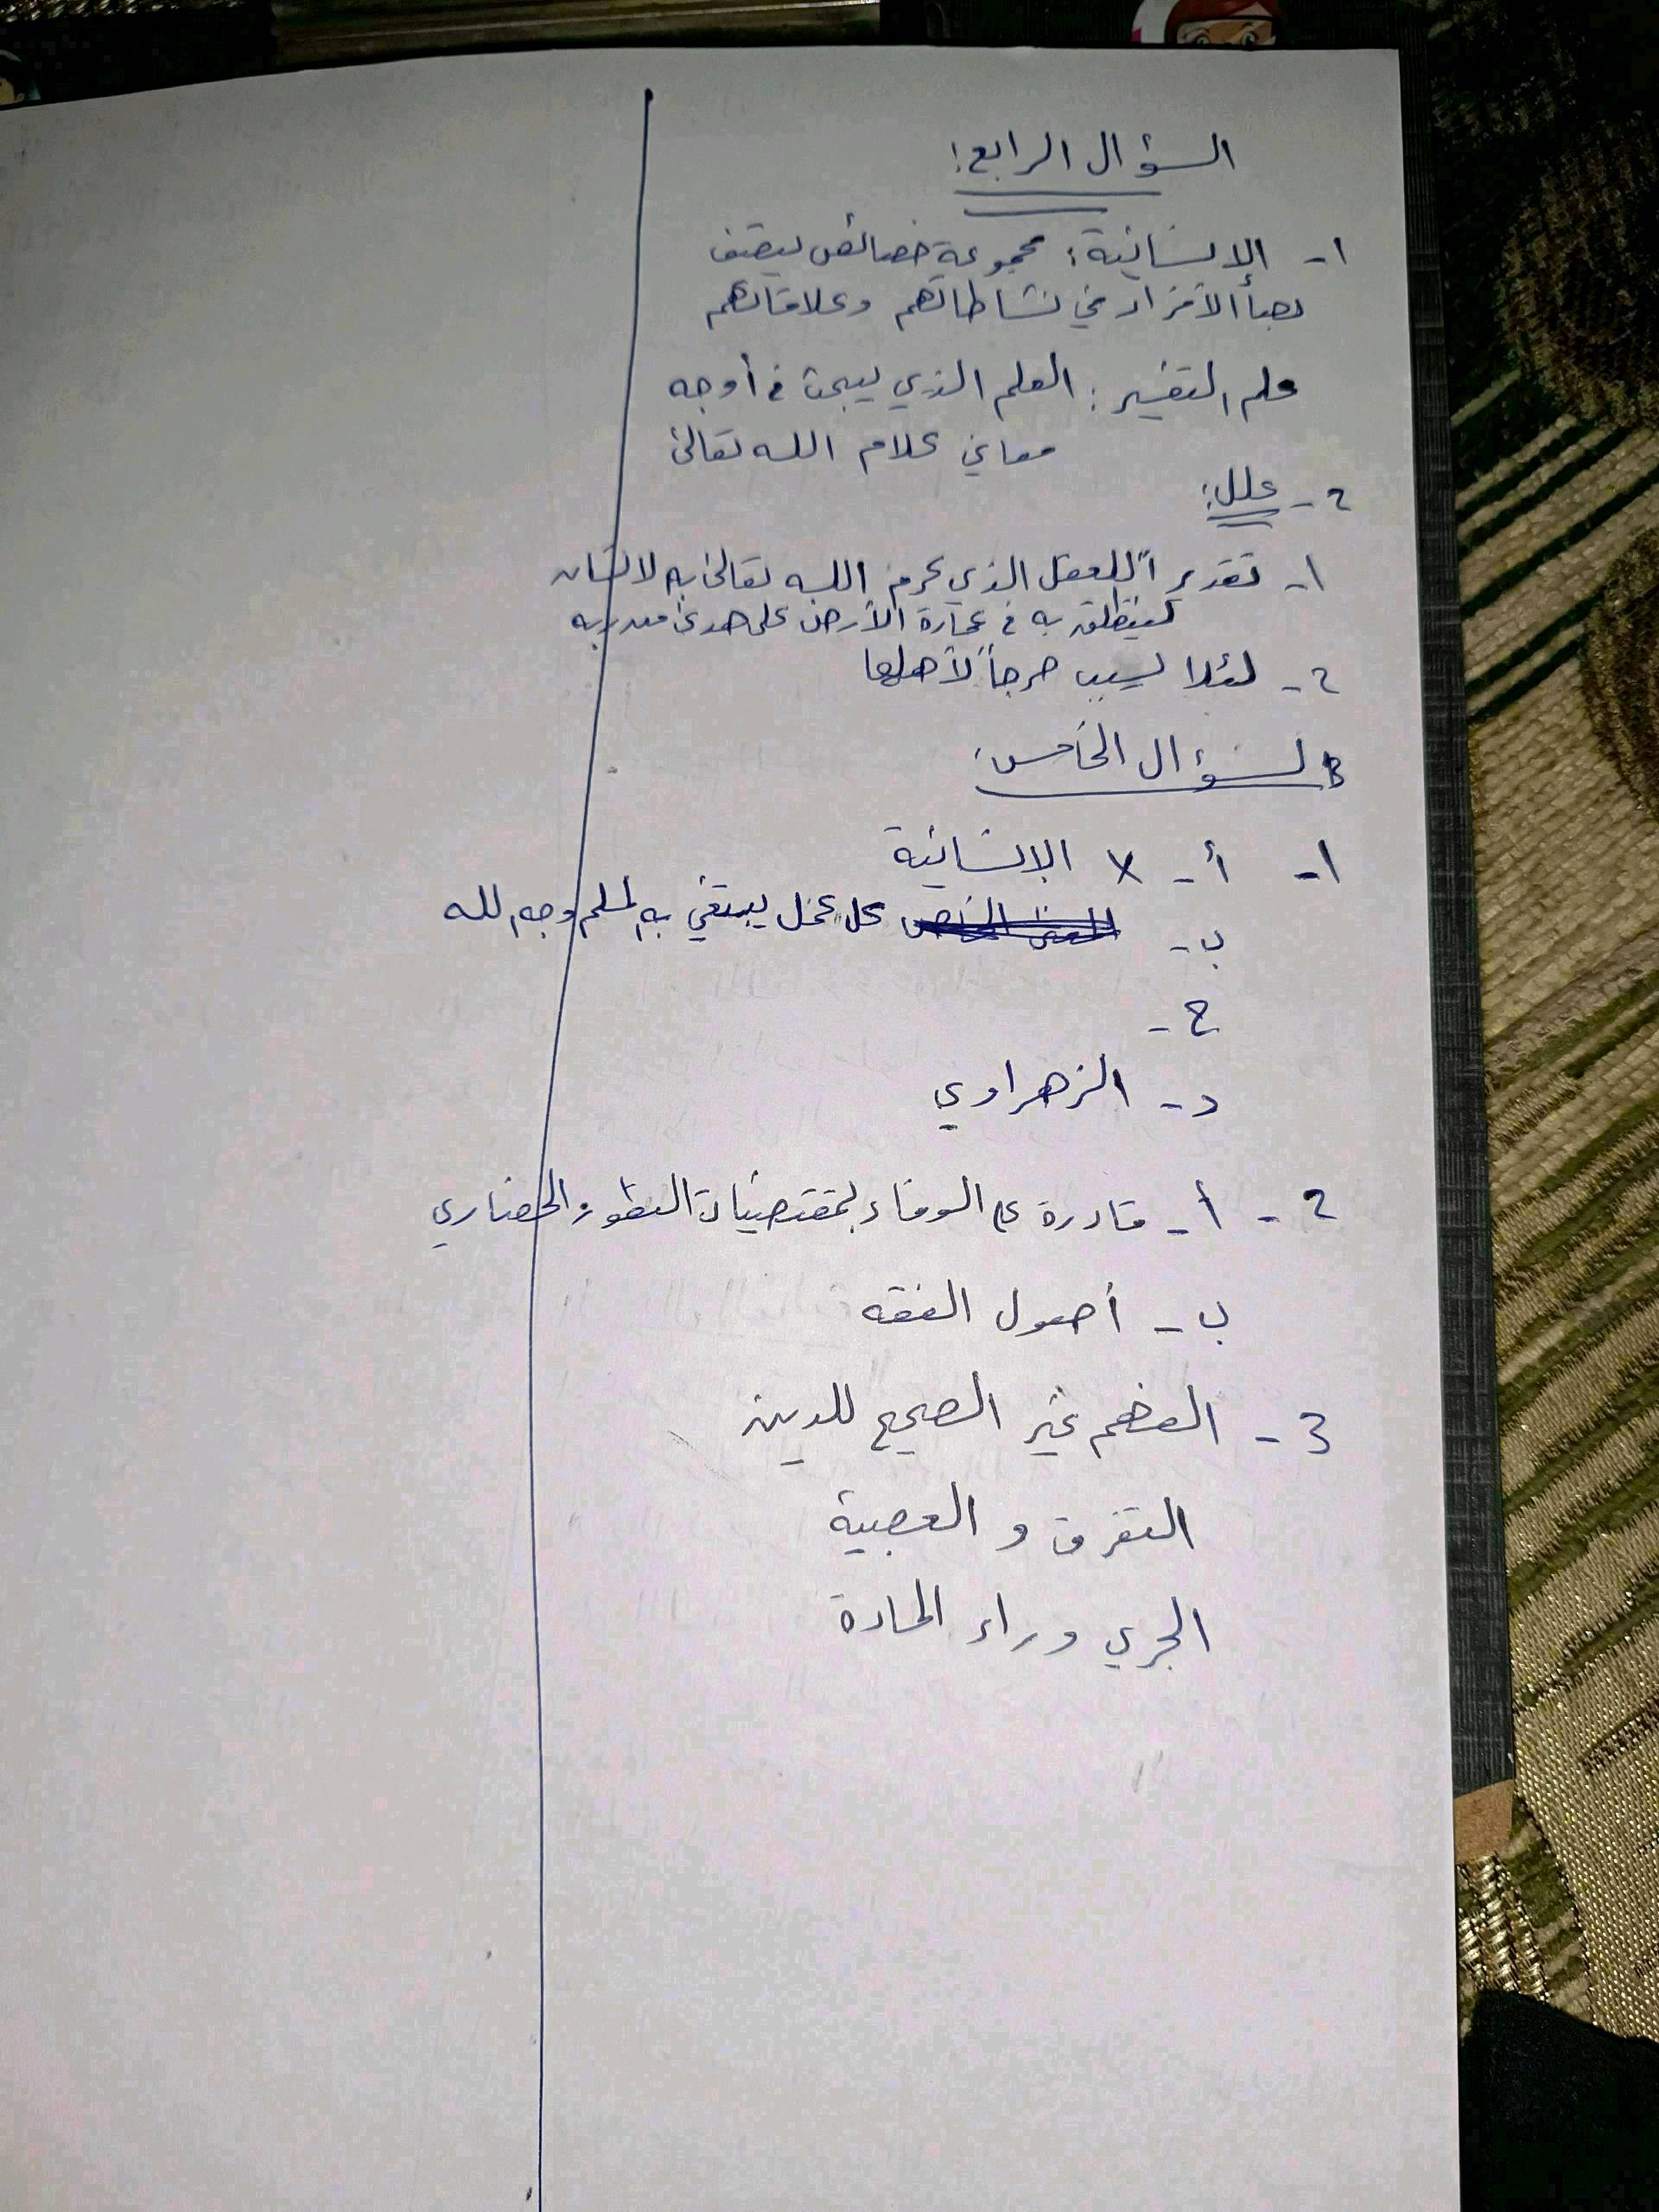 السؤال الرابع:
١- الإنسانية: مجموعة خصائص يتصف
بها الأفراد في نشاطاتهم وعلاقاتهم
علم التفسير: العلم الذي يبحث في أوجه
معاني كلام الله تعالى
٢- علل:
١- تقديراً للعقل الذي كرم الله تعالى به الانسان
لينطلق به في عمارة الأرض على هدى من ربه
٢- لئلا يسبب حرجاً لأهلها
السؤال الخامس:
١- أ- الإنسانية
ب- كل عمل يبتغي به المسلم وجه الله
ج-
د- الزهراوي
٢- أ- قادرة على الوفاء بمقتضيات التطور الحضاري
ب- أصول الفقه
3- الفهم غير الصحيح للدين
التفرق و العصبية
الجري وراء المادة